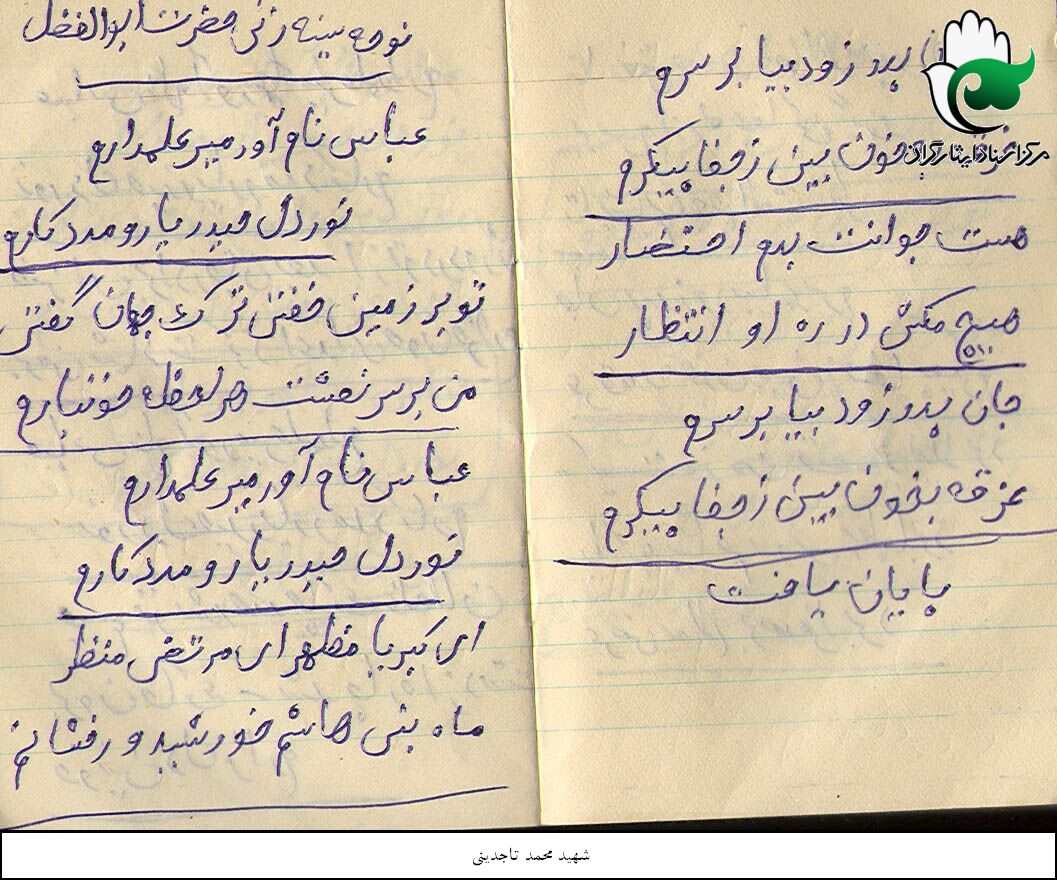 جان پدر زود بیا برسرم
بخون بین ز جفا پیکرم
هست جوانت بدم احتضار
هیچ مکش در ره او انتظار
جان پدر زود بیا برسرم
غرقه بخون بین ز جفا پیکرم
پایان یافت
نوحه سینه زنی حضرت ابوالفضل
عباس نام آور میر علمدارم
نور دل حیدر یار و مددکارم
تو بر زمین خفتی ترک جهان گفتی
من بر سر نعشت هر لحظه خونبارم
عباس نام آور میر علمدارم
نور دل حیدر یار و مددکارم
ای کبریا مظهر ای مرتضی منظر
ماه بنی هاشم خورشید
مرکز اسناد ایثارگران
شهید محمد تاجدینی